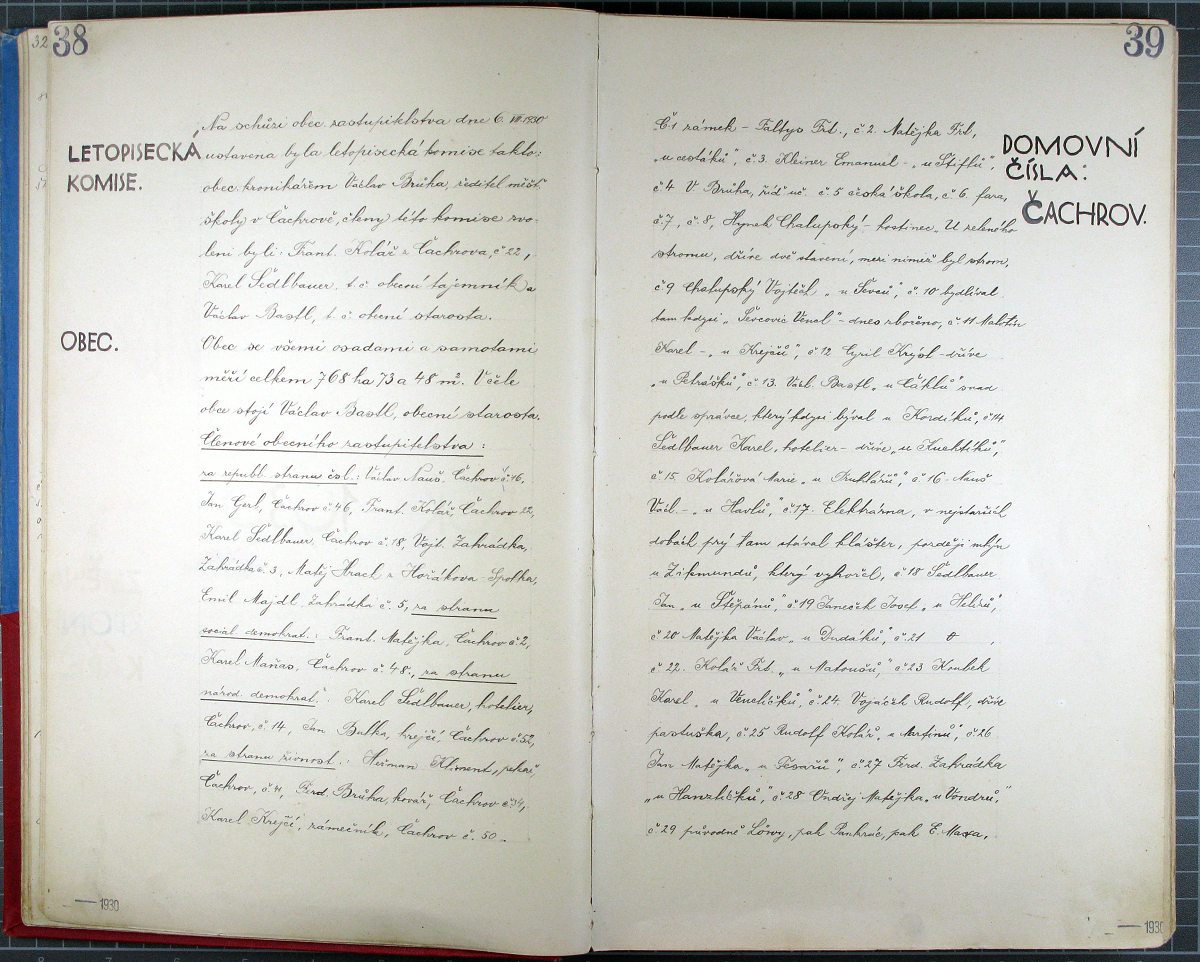 32
38
LETOPISECKÁ
KOMISE.
Na schůzi obec. zastupitelstva dne 6. VII. 1930
ustavena byla letopisecká komise takto:
obec. kronikářem Václav Brůha, ředitel měšť.
školy v Čachrově, členy této komise zvo-
leni byli: Frant. Kolář z Čachrova, č 22,
Karel Sedlbauer, t. č. obecní tajemník a
Václav Bastl, t. č. obecní starosta.
OBEC.
Obec se všemi osadami a samotami
měří celkem 768 ha 73 a 48 m². V čele
obce stojí Václav Bastl, obecní starosta.
Členové obecního zastupitelstva:
za republ. stranu čsl.: Václav Nauš, Čachrov č. 16,
Jan Gerl, Čachrov č 46, Frant. Kolář, Čachrov 22,
Karel Sedlbauer, Čachrov č. 18, Vojt. Zahrádka,
Zahrádka č. 3, Matěj Hrach z Hořákova-Spolka,
Emil Majdl, Zahrádka č. 5, za stranu
sociál. demokrat.: Frant. Matějka, Čachrov č 2,
Karel Maňas, Čachrov č. 48., za stranu
národ. demokrat.: Karel Sedlbauer, hotelier,
Čachrov, č. 14, Jan Bulka, krejčí, Čachrov č. 52,
za stranu živnost.: Heřman Kliment, pekař
Čachrov, č. 41, Ferd. Brůha, kovář, Čachrov č. 34,
Karel Krejčí, zámečník, Čachrov č. 50.
1930
39
DOMOVNÍ
ČÍSLA:
ČACHROV.
Č.1 zámek - Faltys Frt., č 2. Matějka Frt,
„u cestáků", č. 3. Kleiner Emanuel - „u Štiflů",
č. 4 V Brůha, říd. uč. č. 5 česká škola, č 6. fara,
č. 7, č. 8, Hynek Chalupský - hostinec. U zeleného
stromu, dříve dvě stavení, mezi nimiž byl strom,
č 9 Chalupský Vojtěch „u Ševců", č. 10 bydlíval
tam kdysi „Ševcovic Vencl" - dnes zbořeno, č. 11 Matotin
Karel - „u Krejčů", č 12 Cyril Krýsl - dříve
„u Petrášků", č 13. Václ. Bastl „u Čáklů" snad
podle správce, který kdysi býval u Kordíků, č 14
Sedlbauer Karel, hotelier - dříve „u Knechtlíků",
č. 15 Kolářová Marie „u Truhlářů", č. 16. Nauš
Václ. - „u Havlů", č. 17. Elektrárna, v nejstarších
dobách prý tam stával klášter, později mlýn
u Zikmundů, který vyhořel, č. 18 Sedlbauer
Jan „u Štěpánů", č. 19 Janeček Josef „u Helířů",
č 20 Matějka Václav „u Dudáků", č 21 0 ,
č. 22. Kolář Frt. „u Matoušů", č. 23 Koubek
Karel „u Venclíčků", č. 24. Vojáček Rudolf, dříve
pastuška, č. 25 Rudolf Kolář „u Martinů", č 26
Jan Matějka „u Tesařů", č. 27 Ferd. Zahrádka
„u Hanzlíčků", č 28 Ondřej Matějka „u Vondrů,"
č. 29 původně Löwy, pak Pankrác, pak E. Maxa,
1930